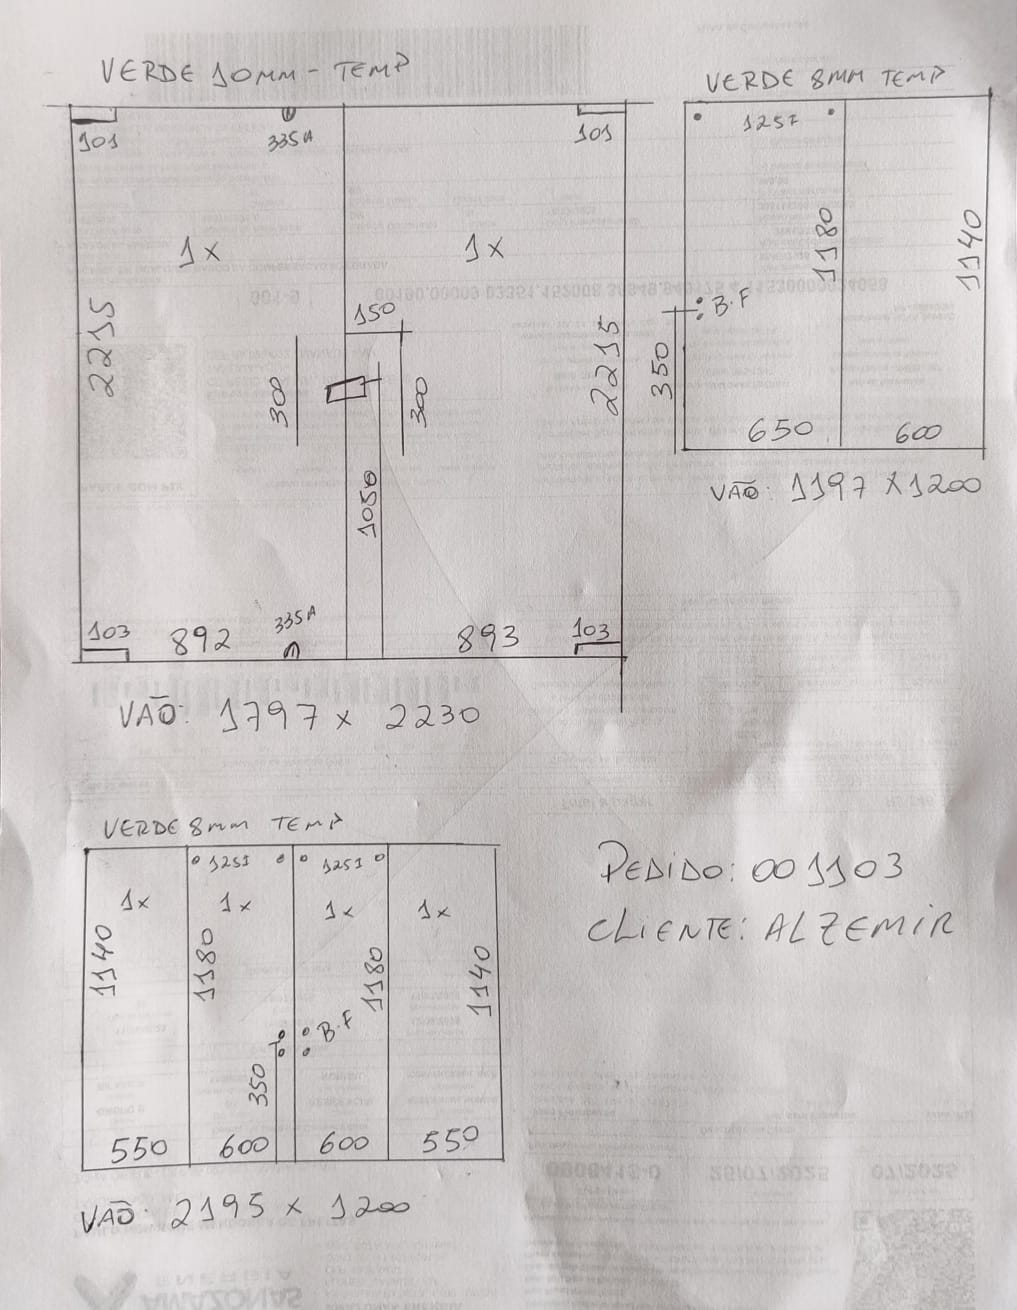 VERDE 10MM - TEMP
101
335A
101
1x
1x
2215
150
300
300
2215
1050
103
892
335A
893
103
VÃO: 1797 x 2230
VERDE 8MM TEMP
1257
1180
1140
B.F
350
650
600
VÃO: 1197 X 1200
VERDE 8mm TEMP
1251
1251
1x
1x
1x
1x
1140
1180
1180
1140
B.F
350
550
600
600
550
VÃO: 2195 x 1200
PEDIDO: 001103
CLIENTE: ALZEMIR